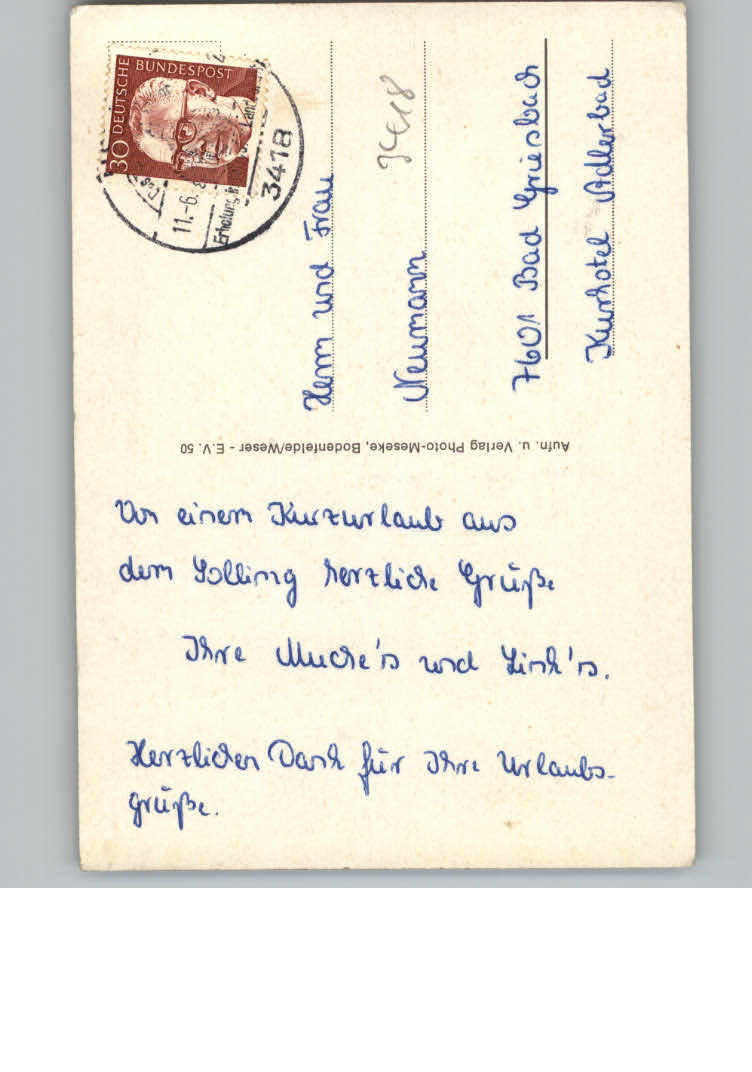 Von einem Kurzurlaub aus
dem Solling herzliche Grüße
Ihre Muche's und Link's.
Herzlichen Dank für Ihre Urlaubs-
grüße.
Aufn. u. Verlag Photo-Meseke, Bodenfelde/Weser - E.V. 50
30 DEUTSCHE BUNDESPOST
3418
11.-6.
Erholung
Herrn und Frau
Neumann
7601 Bad Griesbach
Kurhotel Adlerbad